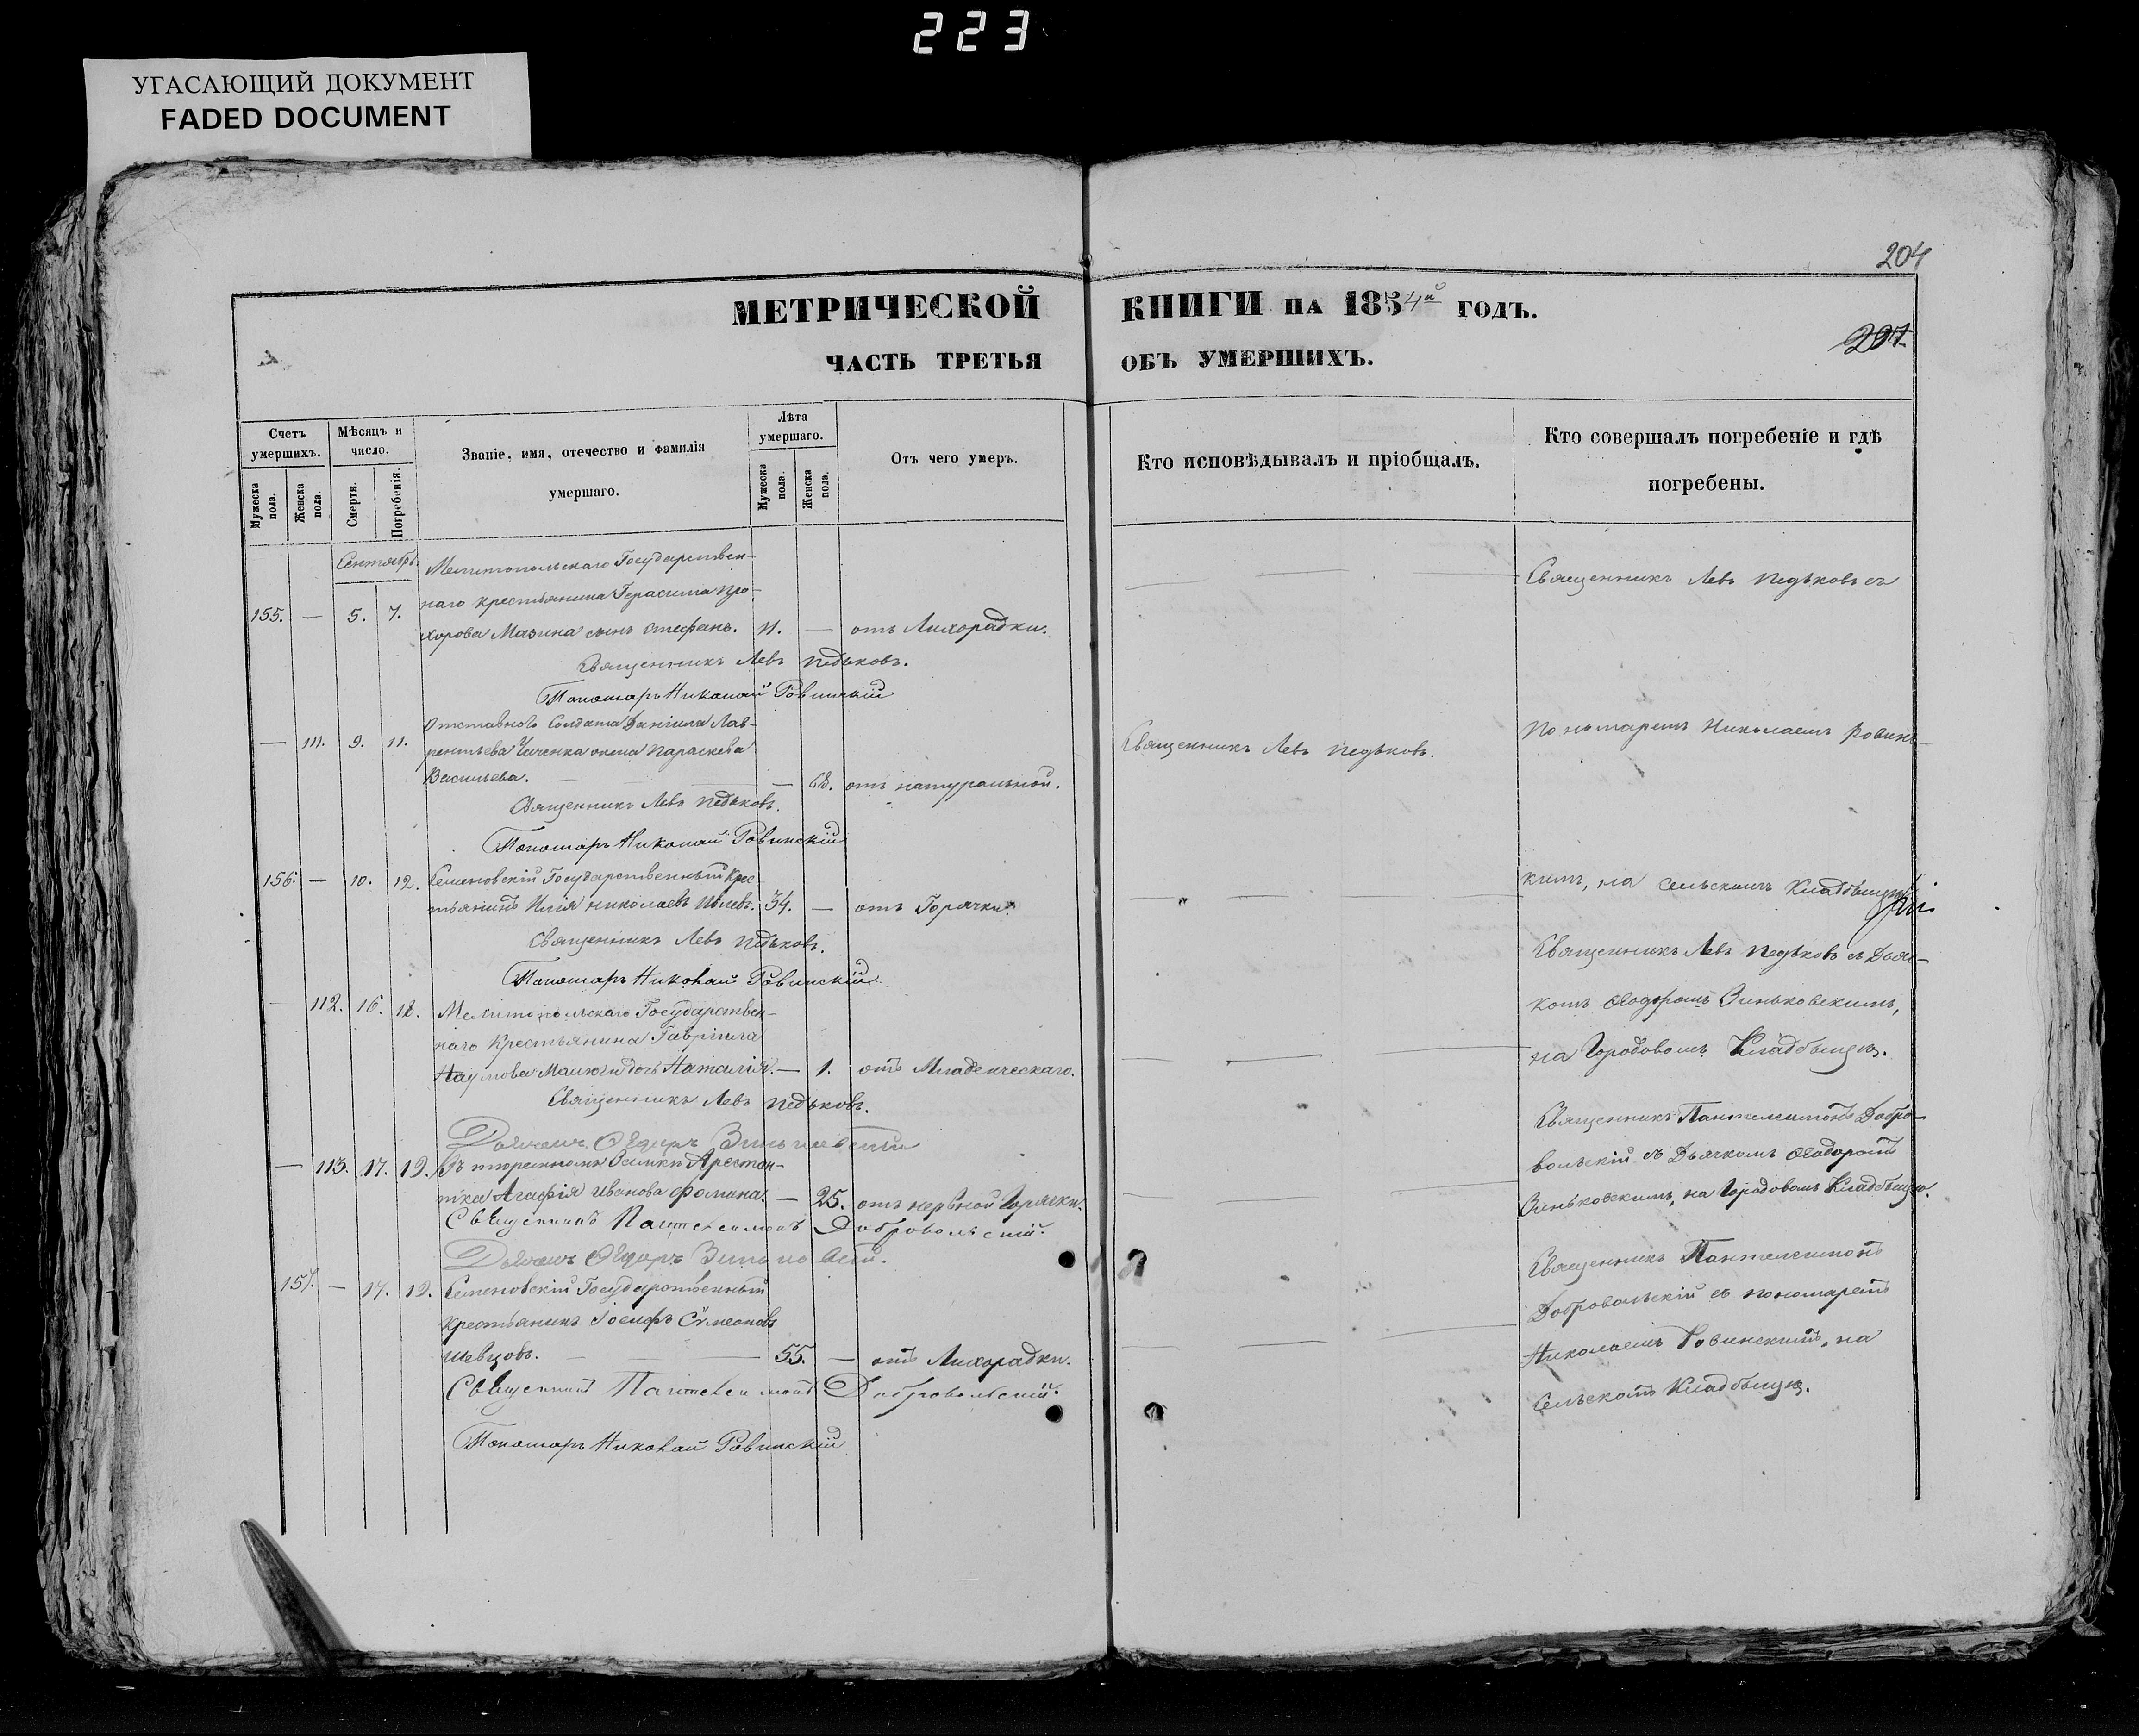 223
УГАСАЮЩИЙ ДОКУМЕНТ
FADED DOCUMENT
204
МЕТРИЧЕСКОЙ КНИГИ НА 1854й ГОДЪ.
297
ЧАСТЬ ТРЕТЬЯ ОБЪ УМЕРШИХЪ.
Счетъ умершихъ.
Мужеска пола.
Женска пола.
Мѣсяцъ и число.
Смерти.
Погребенія.
Званіе, имя, отечество и фамилія умершаго.
Лѣта умершаго.
Мужеска пола.
Женска пола.
Отъ чего умеръ.
Кто исповѣдывалъ и пріобщалъ.
Кто совершалъ погребеніе и гдѣ погребены.
Сентябрь
Мелитопольскаго Государствен-
наго крестьянина Герасима Про-
155. — 5. 7. хорова Мазина сынъ Стефанъ. 11. — отъ Лихорадки.
Священникъ Левъ Педьковъ.
Пономарь Николай Ровинскій
Отставного Солдата Даніила Лав-
— 111. 9. 11. рентьева жена Параскева
Васильева. — 68. отъ натуральной.
Священникъ Левъ Педьковъ.
Пономарь Николай Ровинскій
156. — 10. 12. Семеновскій Государственный Крес-
тьянинъ Илія Николаевъ 34. — отъ Горячки.
Священникъ Левъ Педьковъ.
Пономарь Николай Ровинскій
— 112. 16. 18. Мелитопольскаго Государствен-
наго Крестьянина Гавріила
Наумова дочь Наталія. — 1. отъ Младенческаго.
Священникъ Левъ Педьковъ.
Дьячекъ Ѳедоръ Зиньковскій
— 113. 17. 19. Въ тюремномъ Замкѣ Арестан-
тка Агафія Иванова Фомина. — 25. отъ нервной Горячки.
Священникъ Пантелеимонъ Добровольскій.
Дьячекъ Ѳедоръ Зиньковскій.
157. — 17. 19. Семеновскій Государственный
Крестьянинъ Іосифъ Сѵмеоновъ
Шевцовъ. — 55. — отъ Лихорадки.
Священникъ Пантелеимонъ Добровольскій.
Пономарь Николай Ровинскій
Священникъ Левъ Педьковъ.
Священникъ Левъ Педьковъ съ
Пономаремъ Николаемъ Ровинс-
кимъ, на Сельскомъ Кладбищѣ
Священникъ Левъ Педьковъ съ Дьяч-
комъ Ѳеодоромъ Зиньковскимъ,
на Городовомъ Кладбищѣ.
Священникъ Пантелеимонъ Добро-
вольскій съ Дьячкомъ Ѳеодоромъ
Зиньковскимъ, на Городовомъ Кладбищѣ.
Священникъ Пантелеимонъ
Добровольскій съ пономаремъ
Николаемъ Ровинскимъ, на
Сельскомъ Кладбищѣ.